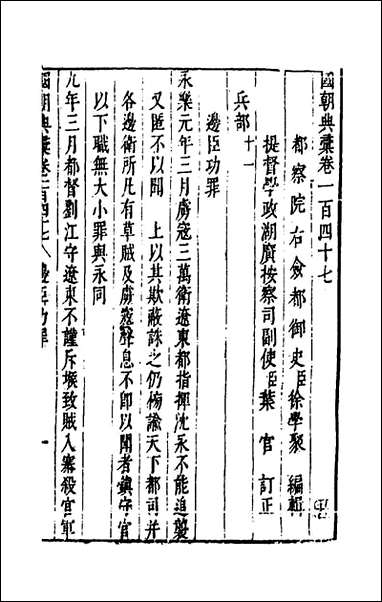 國朝典彙卷一百四十七
都察院右僉都御史臣徐學聚編輯
提督學政湖廣按察司副使臣葉官訂正
兵部十一
邊臣功罪
永樂元年三月虜寇三萬衛遼東都指揮沈永不能追襲
又匿不以聞上以其欺蔽誅之仍榜諭天下都司并
各邊衛所凡有草賊及虜寇聲息不卽以聞者鎮守官
以下職無大小罪與永同
九年三月都督劉江守遼東不謹斥堠致賊入寨殺官軍
國朝典彙卷一百四十七邊臣功罪一